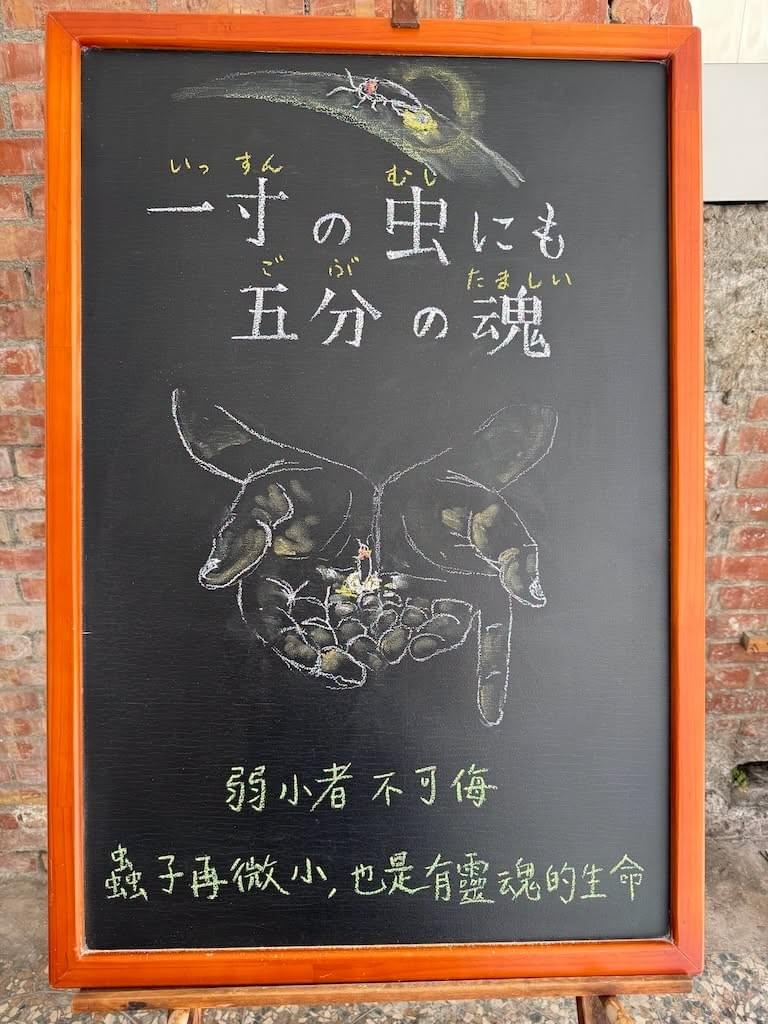 いっ すん むし
一寸の虫にも
ご ぶ たましい
五分の魂
弱小者不可侮
蟲子再微小,也是有靈魂的生命